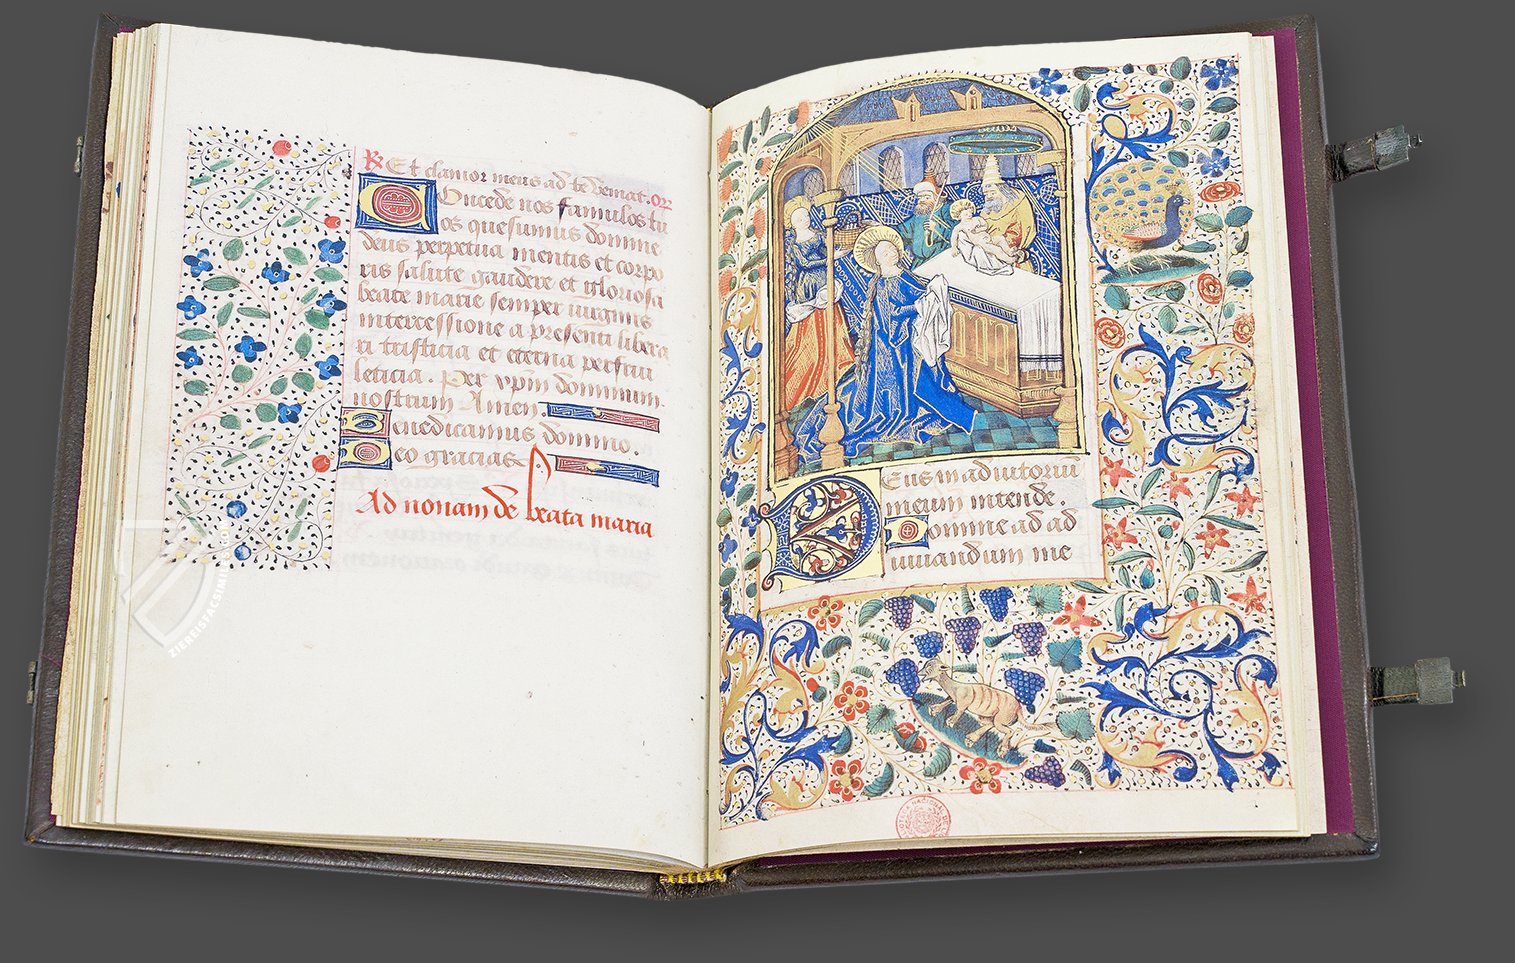 R Et clamor meus ad te veniat. Or
Oncede nos famulos tu
os quesumus domine
deus perpetua mentis et corpo
ris salute gaudere et gloriosa
beate marie semper virginis
intercessione a presenti libera
ri tristicia et eterna perfrui
leticia. Per xpm dominum
nostrum Amen.
Benedicamus domino.
Deo gracias
Ad nonam de beata maria
Deus in adiutoriu
meum intende
Domine ad ad
iuuandum me
ZIEREIS FACSIMILES